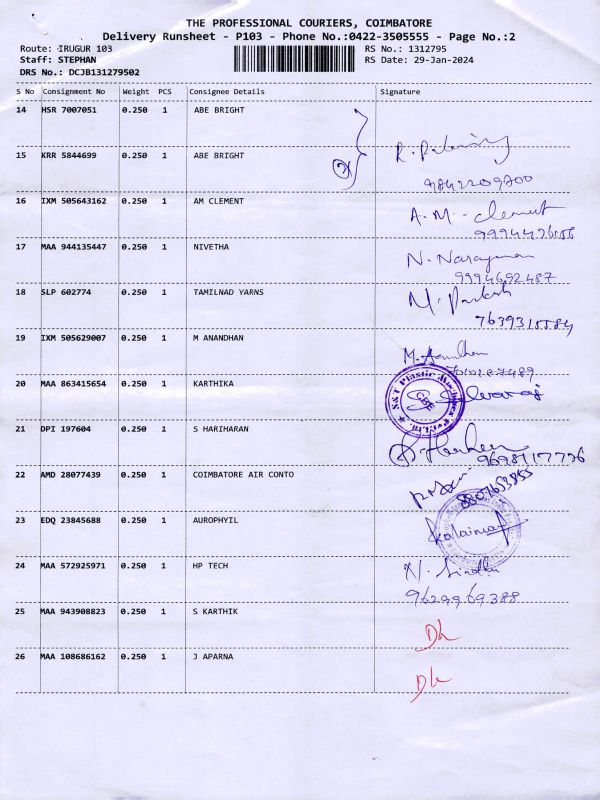 THE PROFESSIONAL COURIERS, COIMBATORE
Delivery Runsheet - P103 - Phone No.:0422-3505555 - Page No.:2
Route: IRUGUR 103 RS No.: 1312795
Staff: STEPHAN RS Date: 29-Jan-2024
DRS No.: DCJB131279502
S No Consignment No Weight PCS Consignee Details Signature
14 HSR 7007051 0.250 1 ABE BRIGHT
15 KRR 5844699 0.250 1 ABE BRIGHT
9842209700
16 IXM 505643162 0.250 1 AM CLEMENT A.M. Clement
17 MAA 944135447 0.250 1 NIVETHA N. Narayanan
9994692487
18 SLP 602774 0.250 1 TAMILNAD YARNS
19 IXM 505629007 0.250 1 M ANANDHAN
20 MAA 863415654 0.250 1 KARTHIKA
21 DPI 197604 0.250 1 S HARIHARAN
22 AMD 28077439 0.250 1 COIMBATORE AIR CONTO
23 EDQ 23845688 0.250 1 AUROPHYIL
24 MAA 572925971 0.250 1 HP TECH
9629969388
25 MAA 943908823 0.250 1 S KARTHIK
26 MAA 108686162 0.250 1 J APARNA